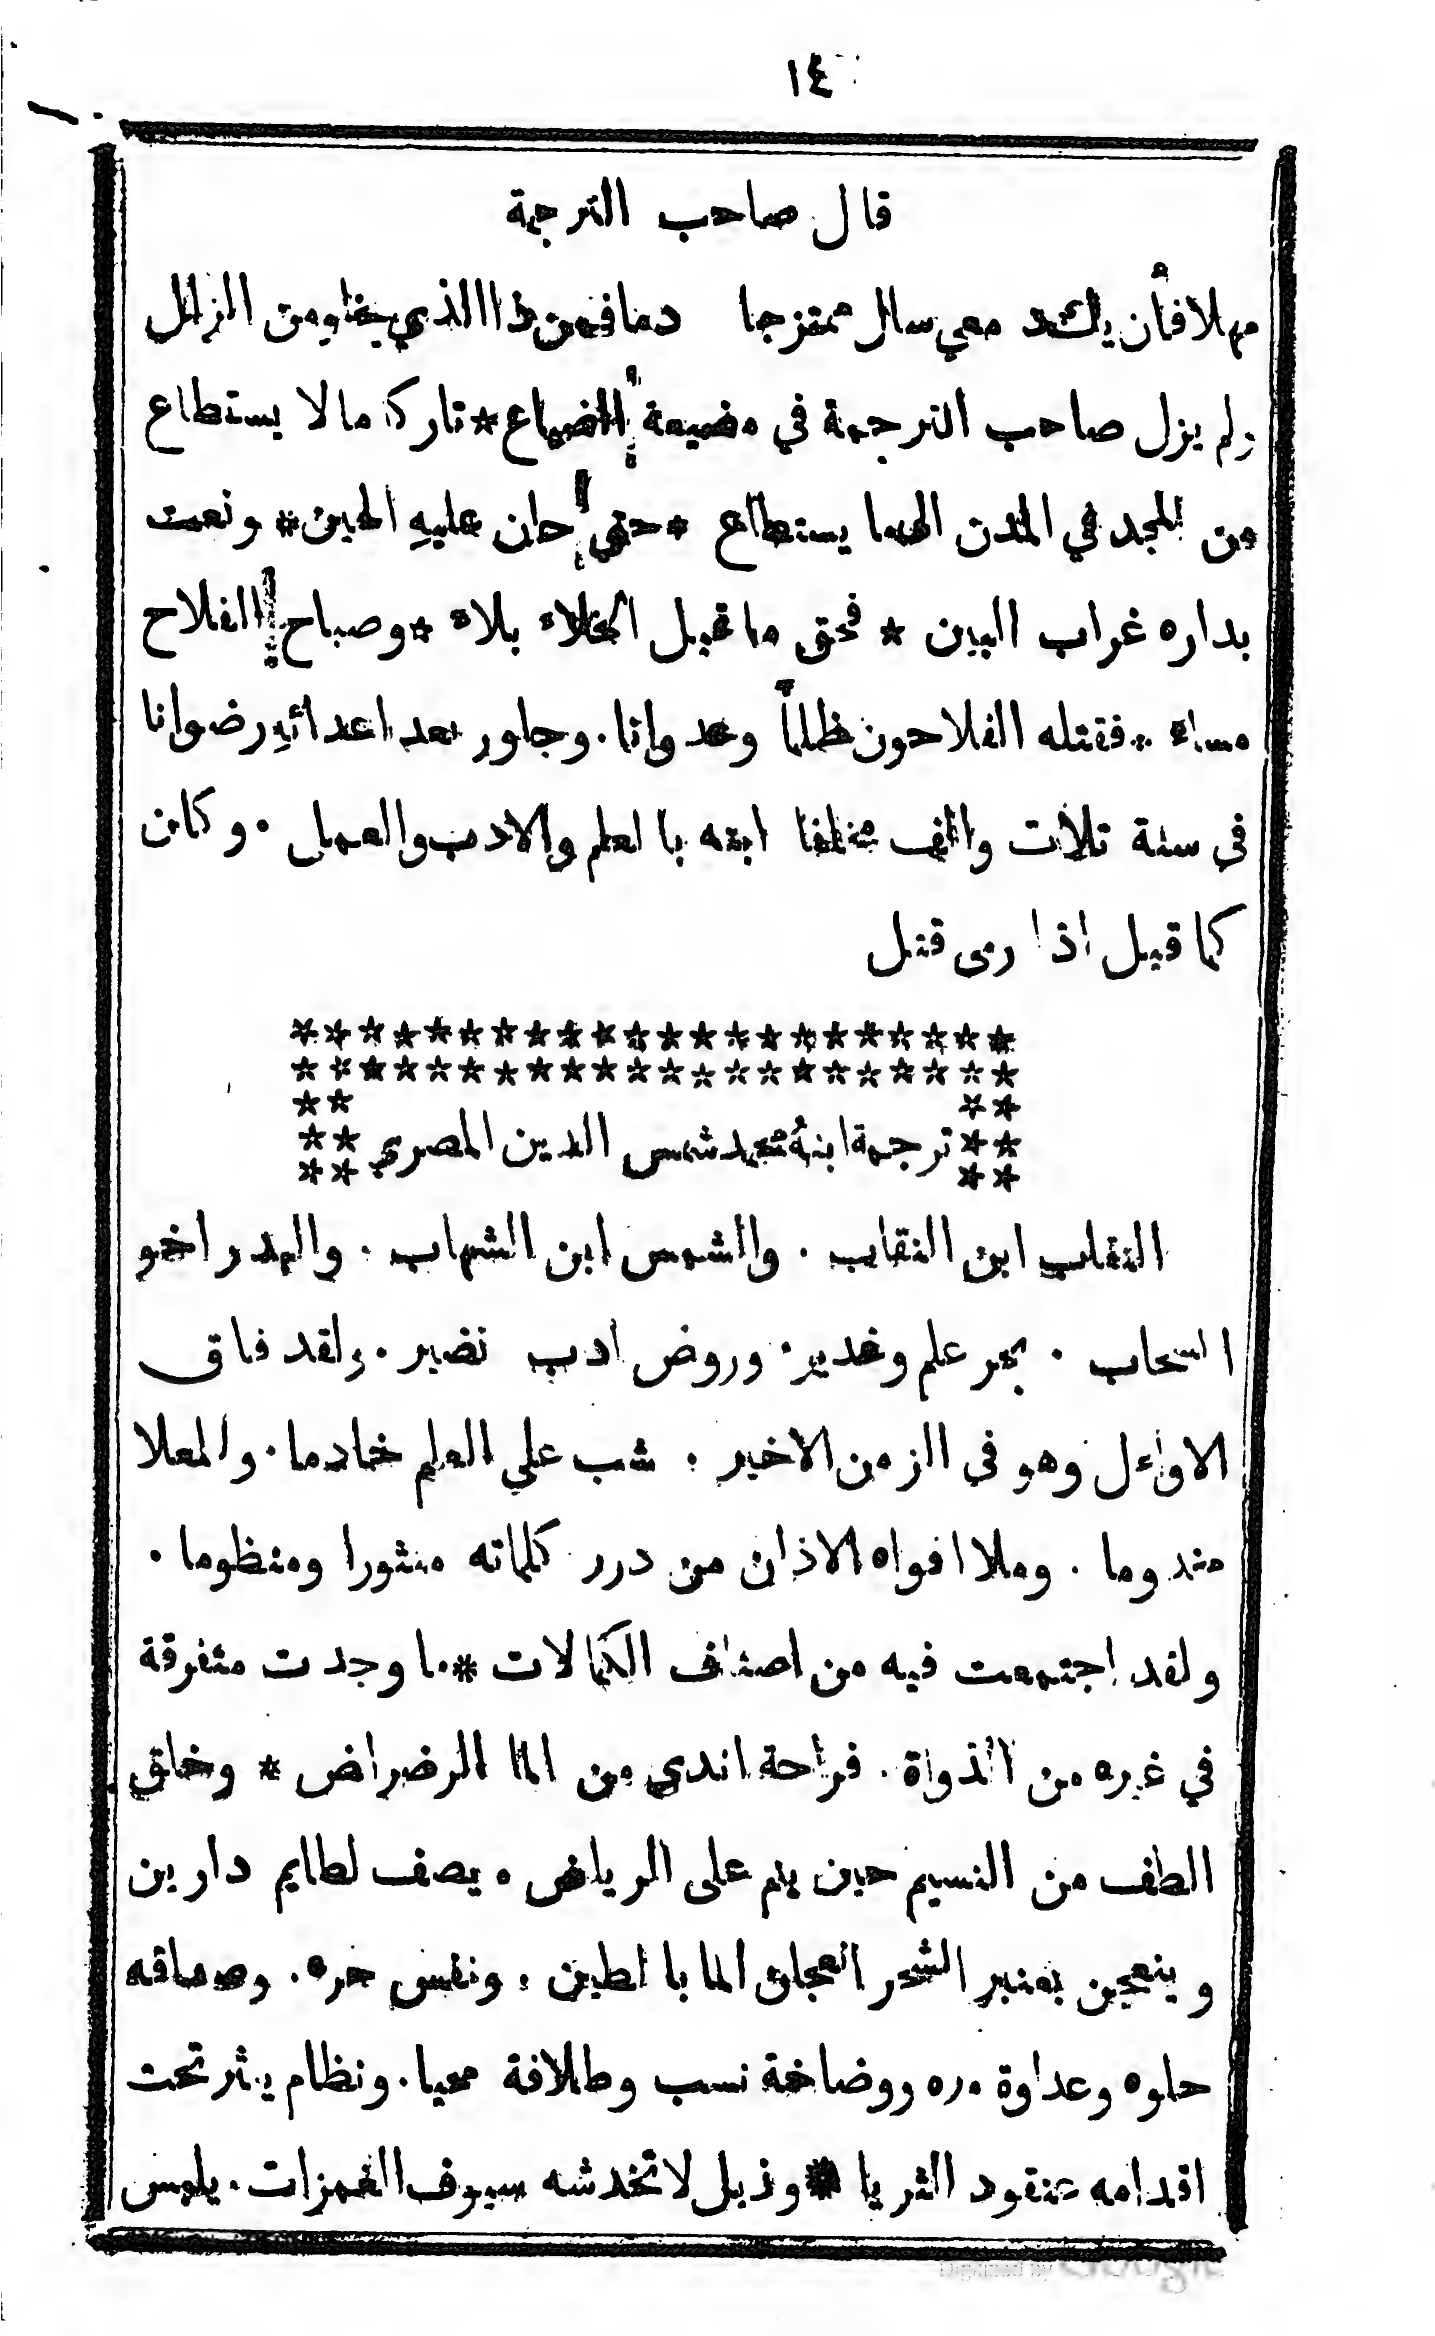 ١٤
قال صاحب الترجمة
مهلا فأن يك دمعي سال ممتزجا دما فمن ذا الذي يخلو من الزلل
ولم يزل صاحب الترجمة في مضيعة الضياع * تاركا مالا يستطاع
من المجد في المدن الى ما يستطاع * حتى حان عليهِ الحين * ونعت
بداره غراب البين * فحق ما قيل الخلاء بلاء * وصباح الفلاح
مساء * فقتله الفلاحون ظلماً وعدوانا. وجاور بعد اعدائهِ رضوانا
في سنة ثلاث والف مخلفا ابنه بالعلم والادب والعمل. وكان
كما قيل اذا رمى قتل
********************** 
********************** 
** **
** ترجمة ابنهُ محمد شمس الدين المصري **
** **
النقاب ابن النقاب. والشمس ابن الشهاب. والبدر اخو
السحاب. بحر علم وغدير. وروض ادب نضير. ولقد فاق
الاوائل وهو في الزمن الاخير. شب على العلم خادما. والمعلا
مخدوما. وملا افواه الاذان من درر كلماته منثورا ومنظوما.
ولقد اجتمعت فيه من اصناف الكمالات * ما وجدت متفرقة
في غيره من الذواة. فراحة اندى من الما الرضراض * وخلق
الطف من النسيم حين ينم على الرياض. يصف لطايم دارين
وينعجن بعنبر الشحر العجان الما با لطين. ونفس حره. وصداقه
حلوه وعداوة مره ووضاخة نسب وطلاقة محيا. ونظام ينثر تحت
اقدامه عنقود الثريا * وذيل لا تخدشه سيوف الغمزات. يلمس